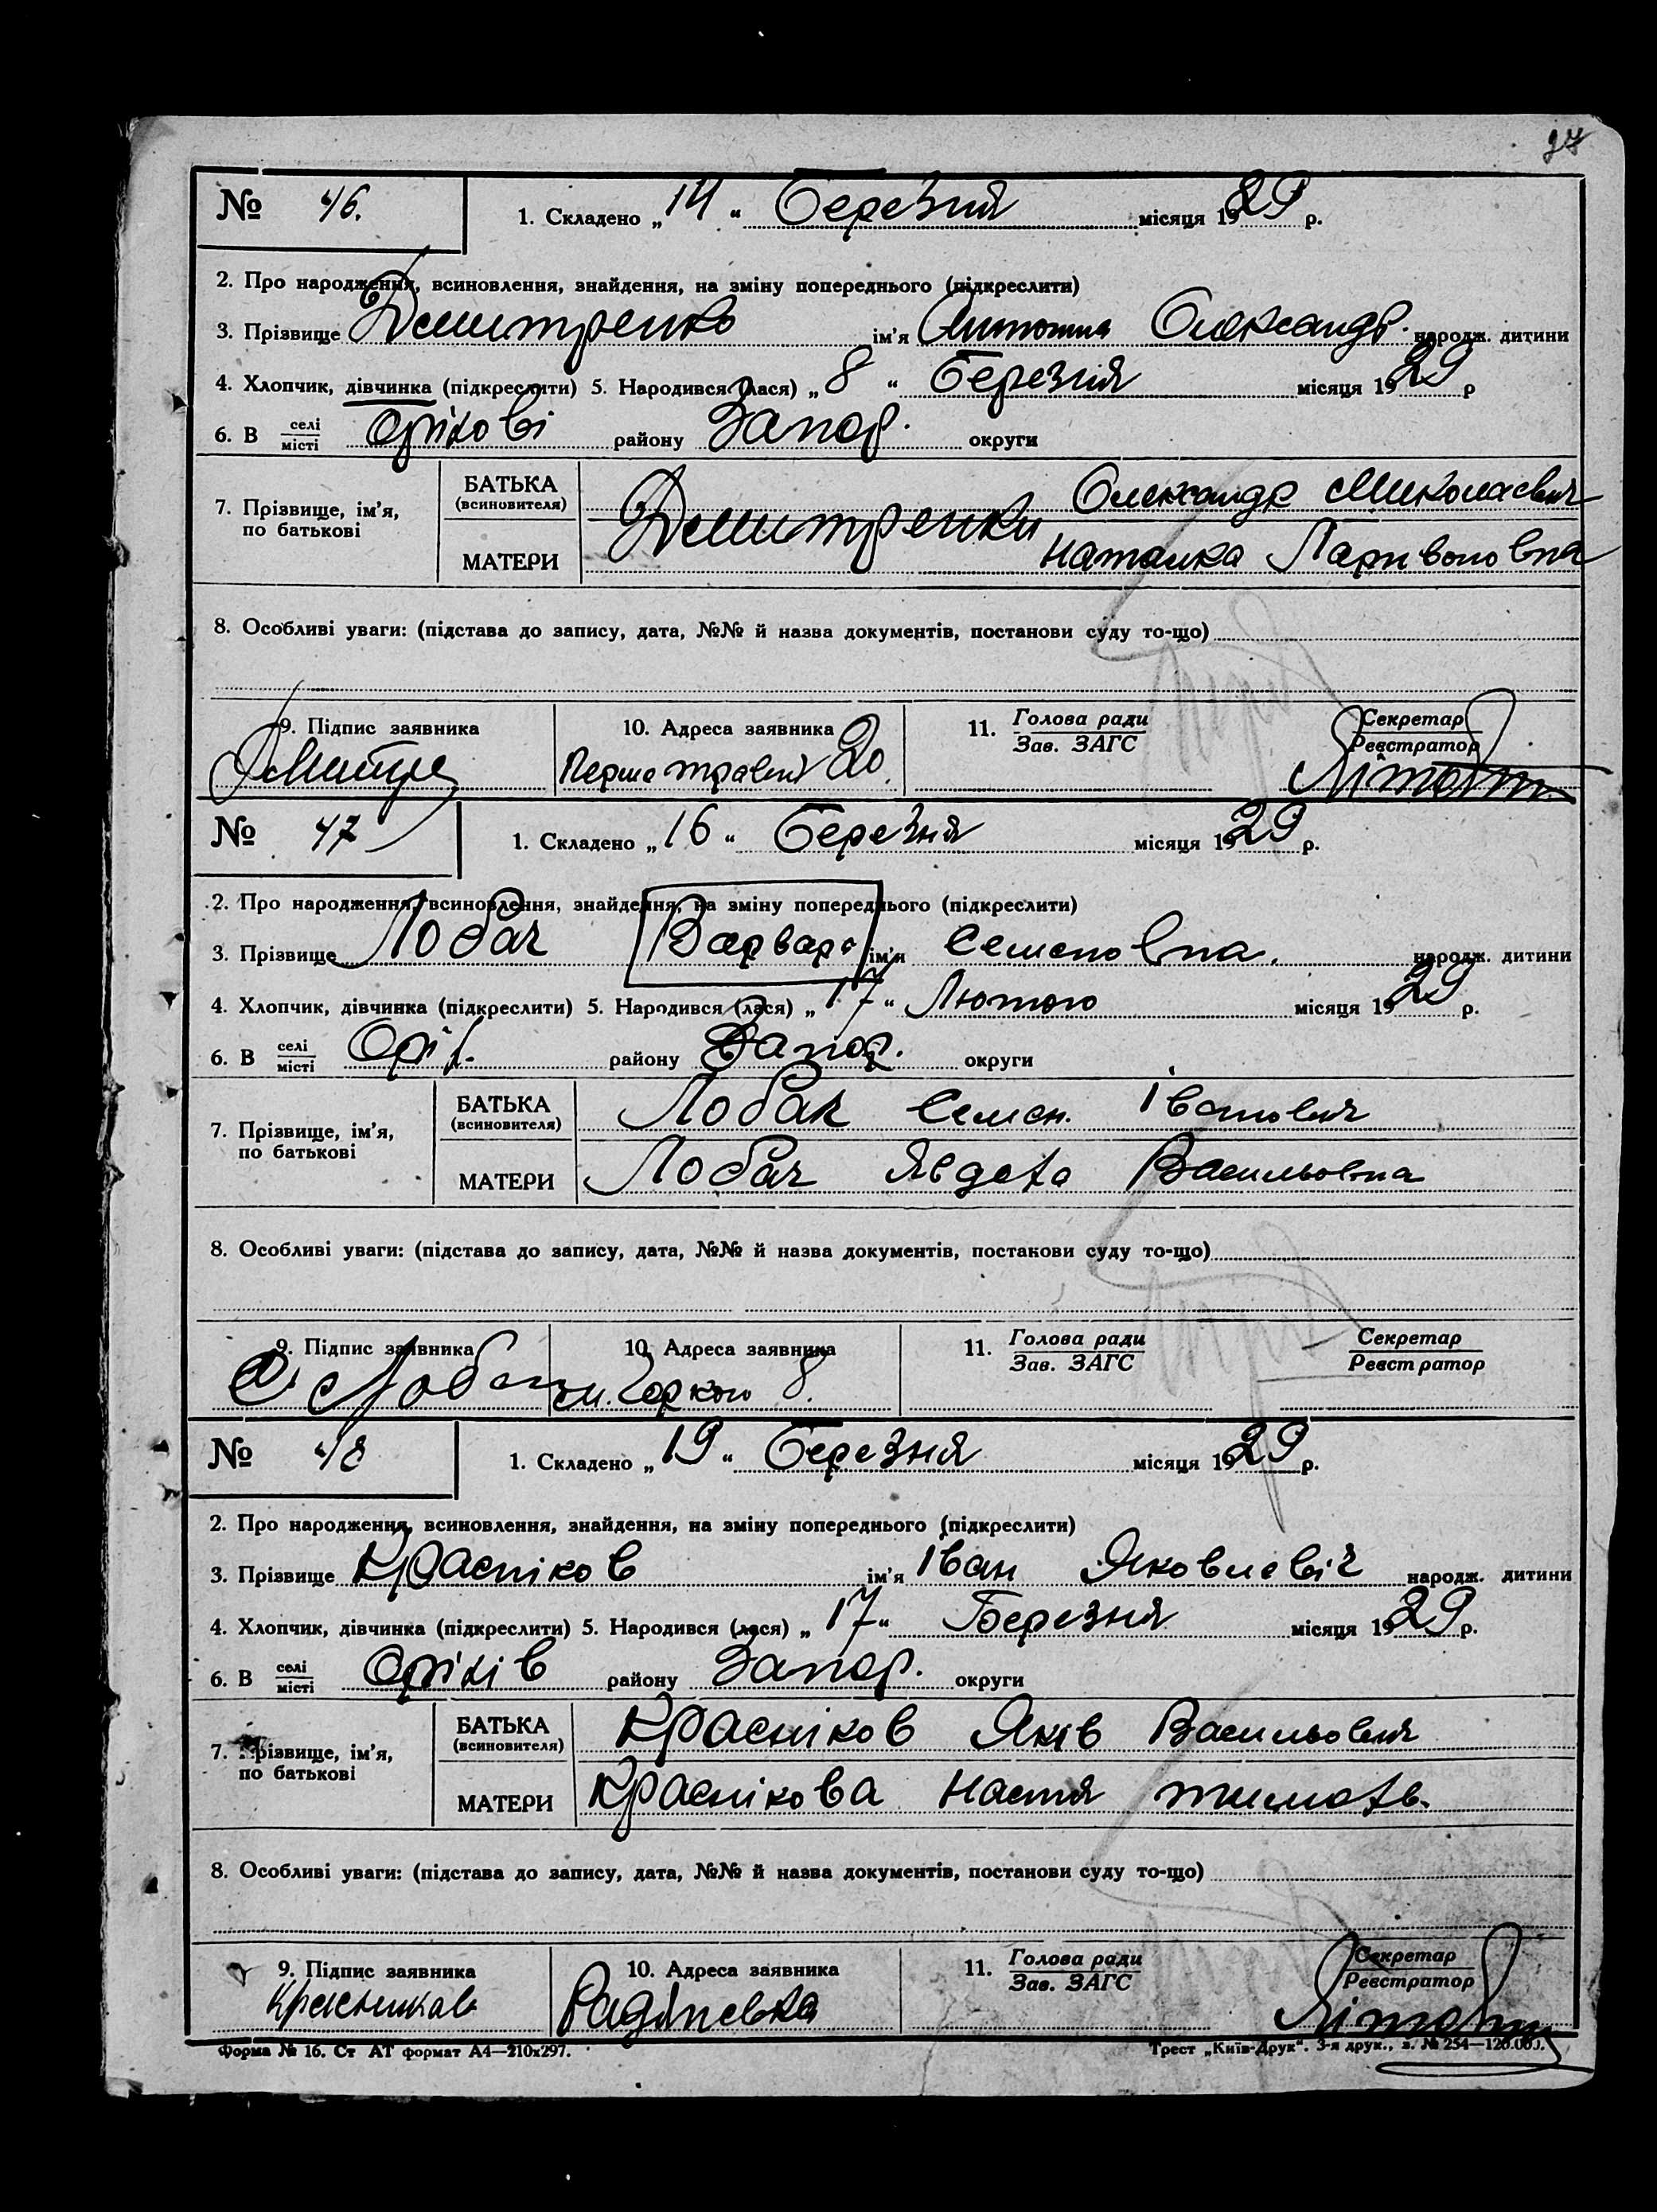 97
№ 46.
1. Складено „14" Березня місяця 1929 р.
2. Про народження, всиновлення, знайдення, на зміну попереднього (підкреслити)
3. Прізвище Дмитренко ім'я Антонина Олександр. народж. дитини
4. Хлопчик, дівчинка (підкреслити) 5. Народився (лася) „8" Березня місяця 1929 р
6. В селі/місті Оріхові району Запор. округи
7. Прізвище, ім'я, по батькові
БАТЬКА (всиновителя) Дмитренки Олександр Миколаевич
МАТЕРИ Наталка Ларивоновна
8. Особливі уваги: (підстава до запису, дата, №№ й назва документів, постанови суду то-що)
9. Підпис заявника 10. Адреса заявника 11. Голова ради / Зав. ЗАГС Секретар / Реєстратор
Перше травня 20.
№ 47
1. Складено „16" Березня місяця 1929 р.
2. Про народження, всиновлення, знайдення, на зміну попереднього (підкреслити)
3. Прізвище Лобач Варвара ім'я Семеновна. народж. дитини
4. Хлопчик, дівчинка (підкреслити) 5. Народився (лася) „17" Лютого місяця 1929 р.
6. В селі/місті Оріх. району Запор. округи
7. Прізвище, ім'я, по батькові
БАТЬКА (всиновителя) Лобач Семен. Іванович
МАТЕРИ Лобач Явдоха Васильовна
8. Особливі уваги: (підстава до запису, дата, №№ й назва документів, постанови суду то-що)
9. Підпис заявника 10. Адреса заявника 11. Голова ради / Зав. ЗАГС Секретар / Реєстратор
Лобач Горкого 8.
№ 48
1. Складено „19" Березня місяця 1929 р.
2. Про народження, всиновлення, знайдення, на зміну попереднього (підкреслити)
3. Прізвище Красніков ім'я Іван Яковлевіч народж. дитини
4. Хлопчик, дівчинка (підкреслити) 5. Народився (лася) „17" Березня місяця 1929 р.
6. В селі/місті Оріхів району Запор. округи
7. Прізвище, ім'я, по батькові
БАТЬКА (всиновителя) Красніков Яків Васильович
МАТЕРИ Краснікова Настя Тимохв.
8. Особливі уваги: (підстава до запису, дата, №№ й назва документів, постанови суду то-що)
9. Підпис заявника 10. Адреса заявника 11. Голова ради / Зав. ЗАГС Секретар / Реєстратор
Красников
Форма № 16. Ст АТ формат А4—210х297. Трест „Київ-Друк". 3-я друк., з. № 254—120.000.